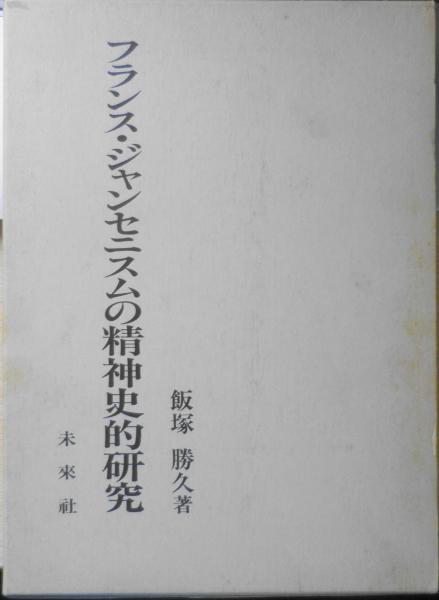 フランス・ジャンセニスムの精神史的研究
飯塚 勝久著
未來社